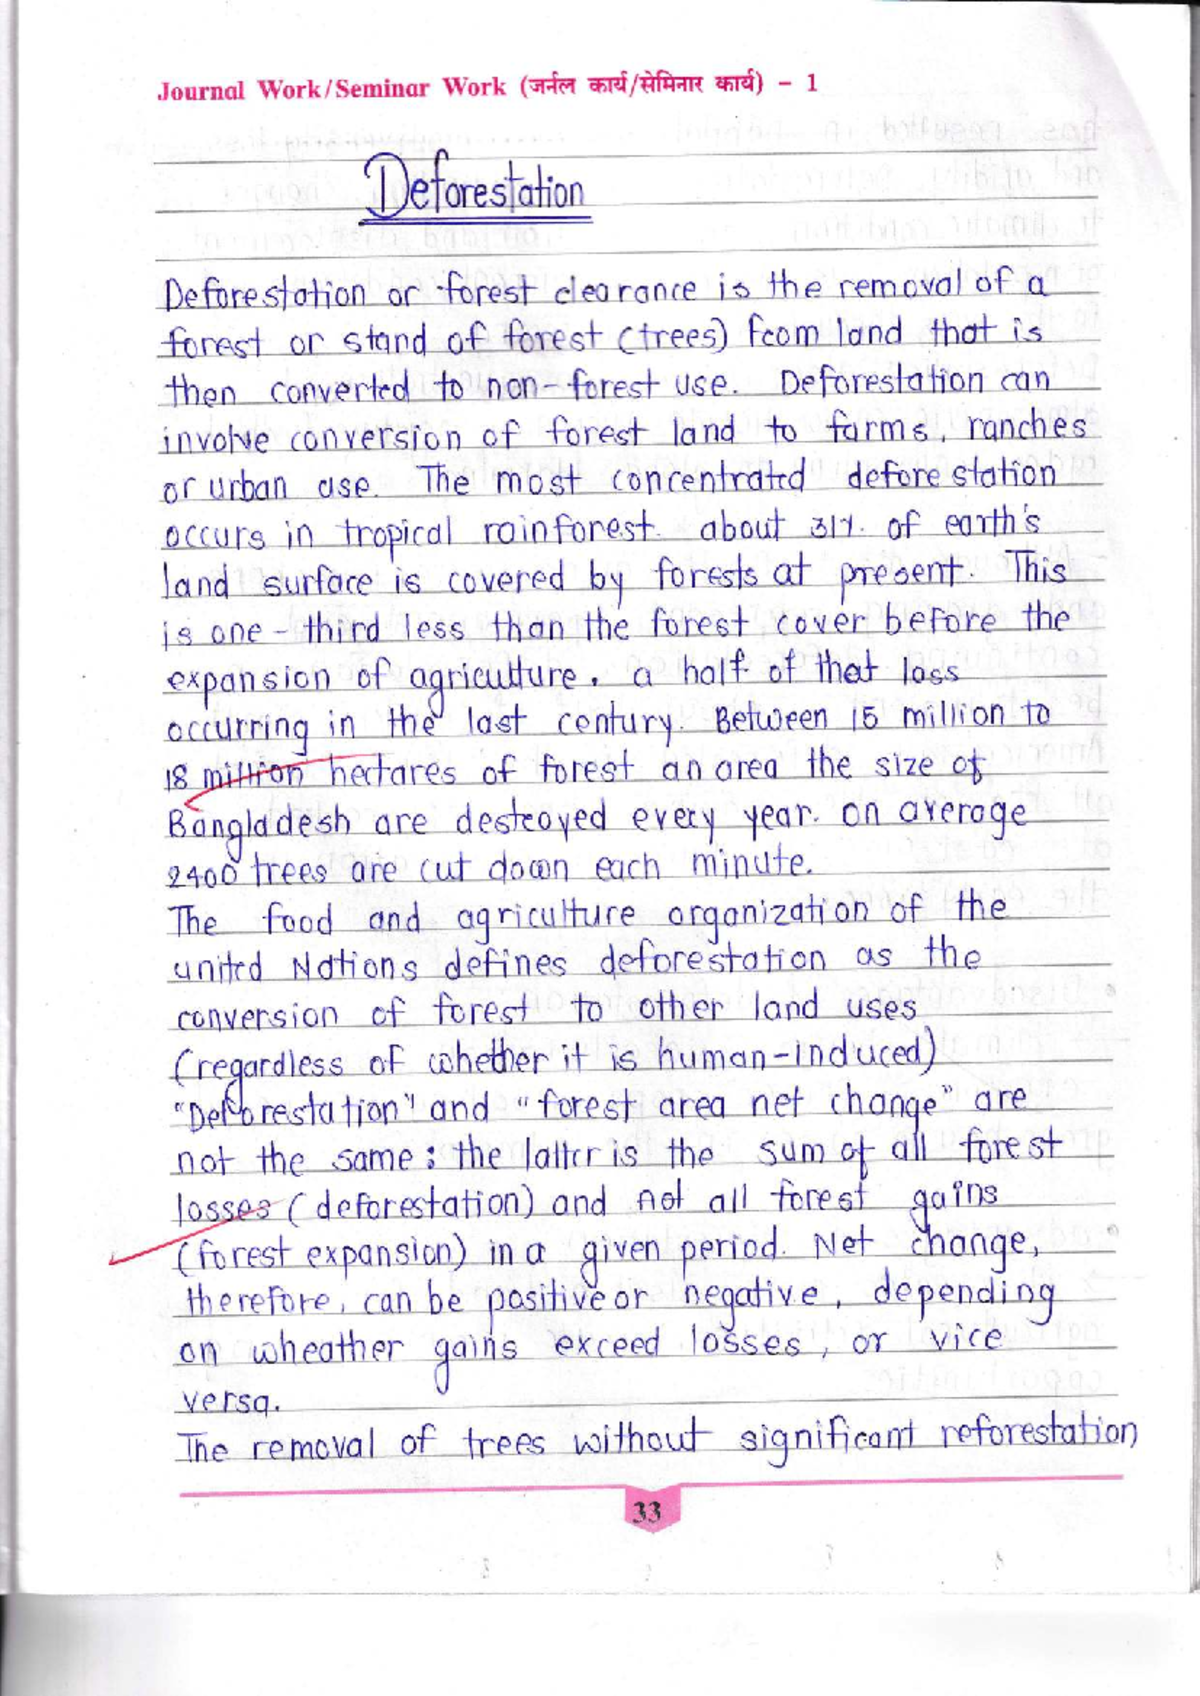 Journal Work/Seminar Work (जर्नल कार्य/सेमिनार कार्य) – 1
Deforestation
Deforestation or forest clearance is the removal of a
forest or stand of forest (trees) from land that is
then converted to non-forest use. Deforestation can
involve conversion of forest land to farms, ranches
or urban use. The most concentrated deforestation
occurs in tropical rainforest. about 31% of earth's
land surface is covered by forests at present. This
is one-third less than the forest cover before the
expansion of agriculture. a half of that loss
occurring in the last century. Between 15 million to
18 million hectares of forest an area the size of
Bangladesh are destroyed every year. on average
2400 trees are cut down each minute.
The food and agriculture organization of the
united Nations defines deforestation as the
conversion of forest to other land uses
(regardless of whether it is human-induced)
"Deforestation" and "forest area net change" are
not the same: the latter is the sum of all forest
losses (deforestation) and not all forest gains
(forest expansion) in a given period. Net change,
therefore, can be positive or negative, depending
on wheather gains exceed losses, or vice
versa.
The removal of trees without significant reforestation
33